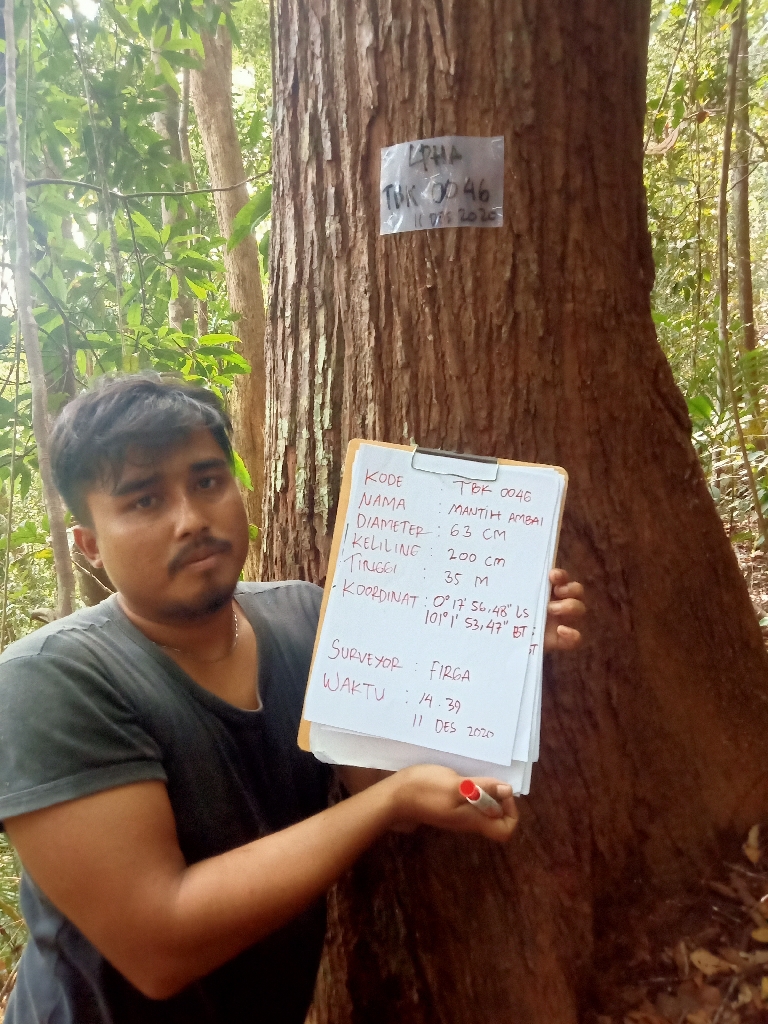 LPHA
TBK 0046
11 DES 2020
KODE : TBK 0046
NAMA : MANTIH AMBAI
DIAMETER : 63 CM
KELILINE : 200 CM
TINGGI : 35 M
KOORDINAT : 0° 17' 56,48" LS
101° 1' 53,47" BT
SURVEYOR : FIRGA
WAKTU : 14.39
11 DES 2020